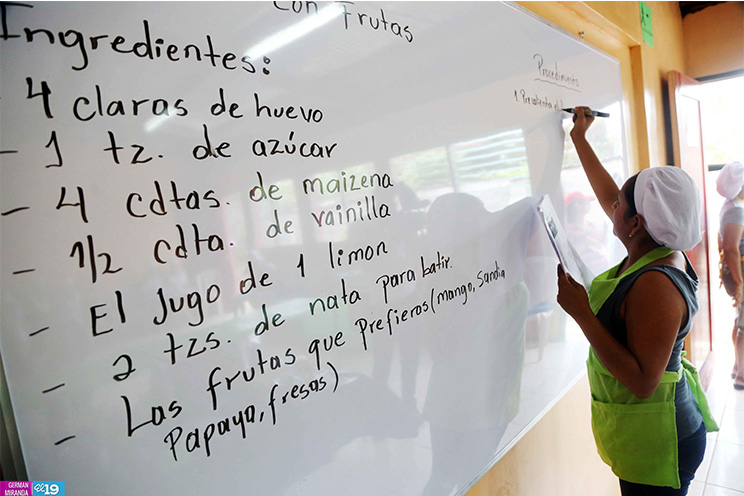 Con Frutas
Ingredientes:
4 claras de huevo
- 1 tz. de azúcar
- 4 cdtas. de maizena
- 1/2 cdta. de vainilla
- El Jugo de 1 limon
- 2 tzs. de nata para batir.
- Las frutas que prefieras (mango, Sandia
Papaya, fresas)
Procedimiento
1. Precalentar el
GERMAN
MIRANDA
19